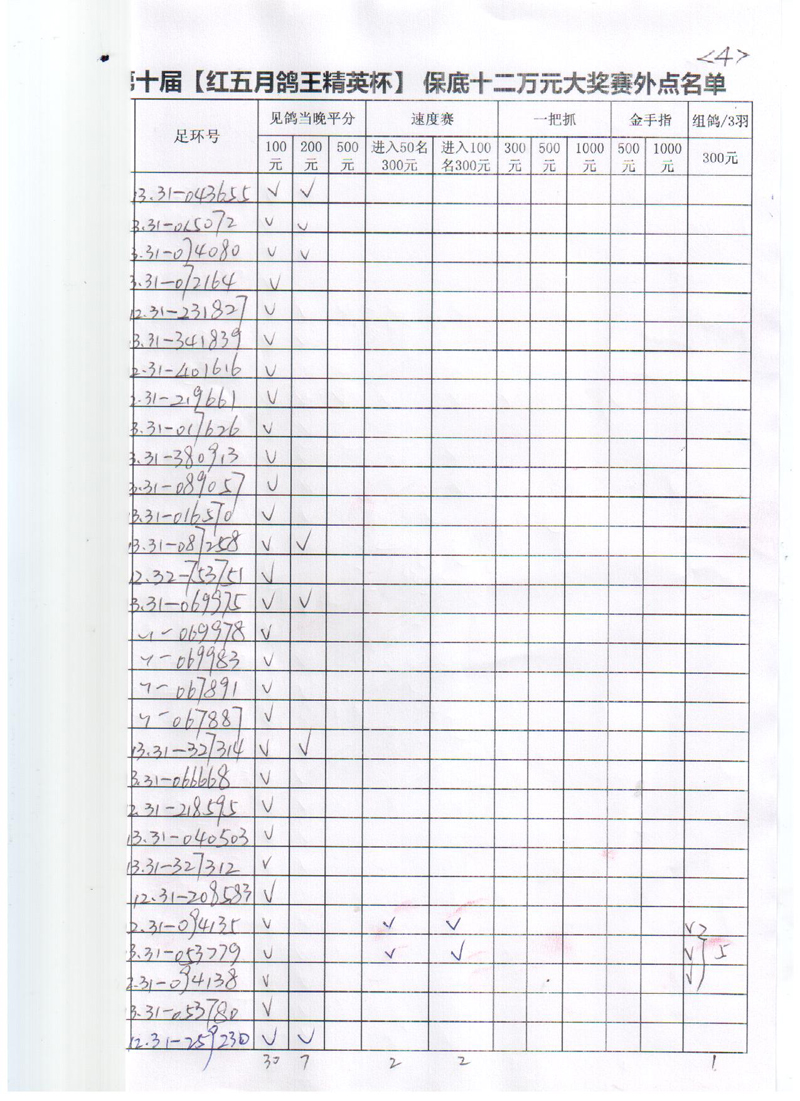 <4>
第十届【红五月鸽王精英杯】 保底十二万元大奖赛外点名单
足环号 见鸽当晚平分 速度赛 一把抓 金手指 组鸽/3羽
100元 200元 500元 进入50名300元 进入100名300元 300元 500元 1000元 500元 1000元 300元
13.31-043655 √ √
3.31-065072 √ √
3.31-074080 √ √
3.31-072164 √
12.31-231827 √
3.31-341839 √
2.31-401616 √
2.31-219661 √
3.31-017626 √
3.31-380913 √
3.31-089057 √
13.31-016570 √
13.31-087258 √ √
12.32-753751 √
3.31-069975 √ √
〃-069978 √
〃-069983 √
〃-067891 √
〃-067887 √
13.31-327314 √ √
3.31-066668 √
2.31-218595 √
13.31-040503 √
13.31-327312 √
12.31-208583 √
2.31-094135 √ √ √ √
3.31-053779 √ √ √ √ 5
2.31-094138 √ √
3.31-053780 √
12.31-259230 √ √
30 7 2 2 1